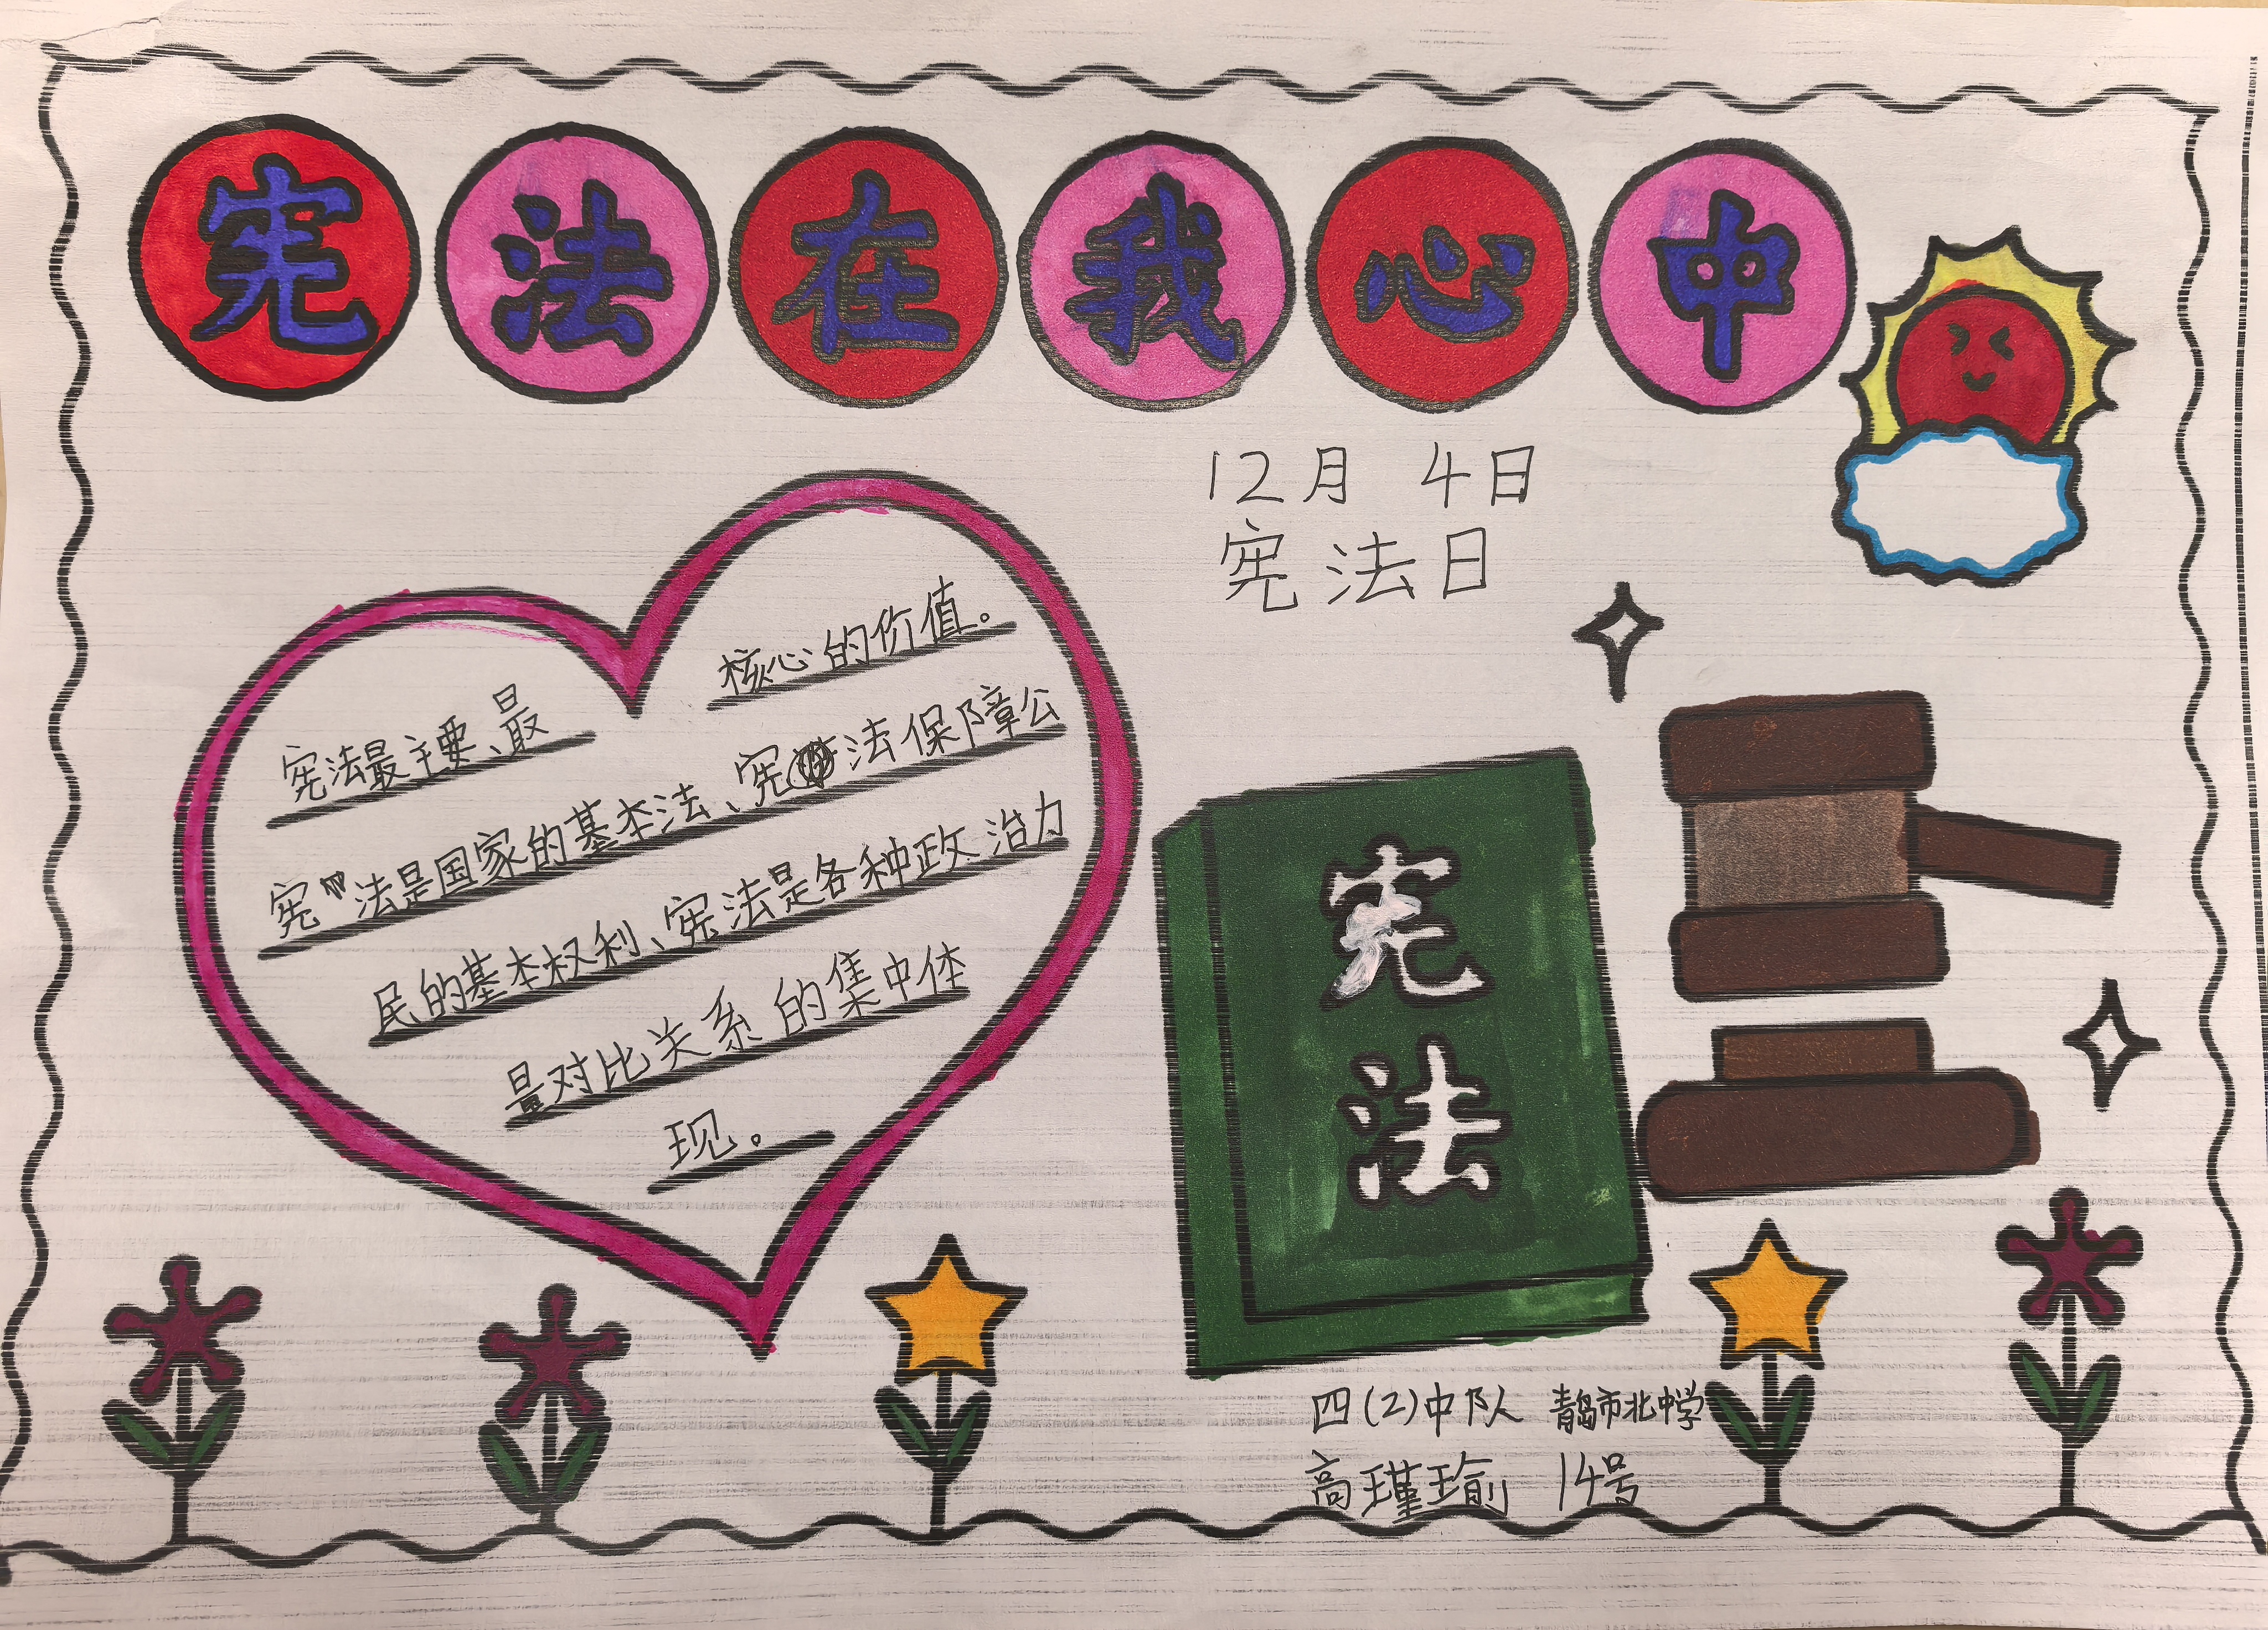 宪法在我心中
12月 4日
宪法日
宪法最主要、最
核心的价值。
宪法是国家的基本法、宪法保障公
民的基本权利、宪法是各种政治力
量对比关系的集中体
现。
宪
法
四(2)中队 青岛市北中学
高瑾瑜 14号